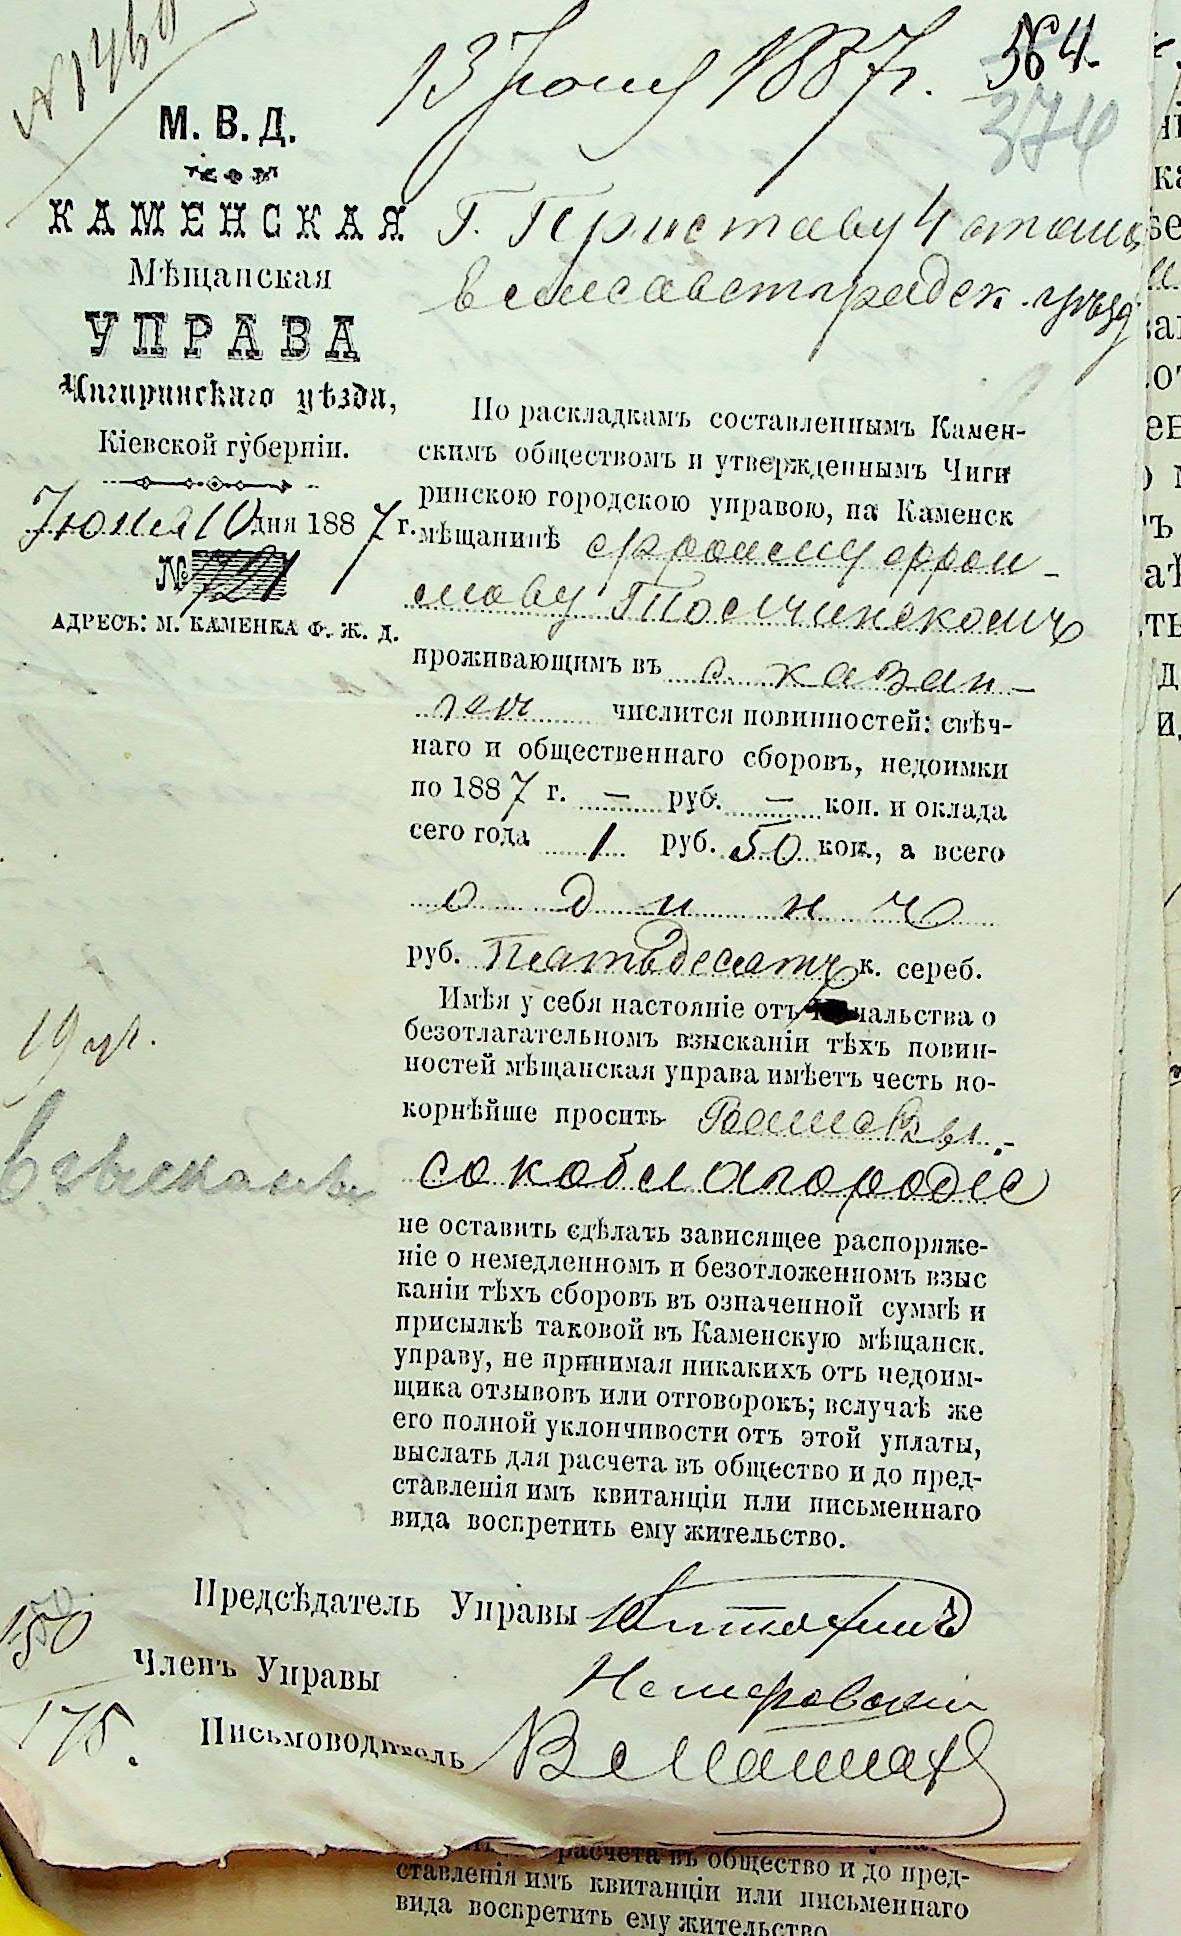 13 Іюня 1887 г.
364.
374
М. В. Д.
КАМЕНСКАЯ
Мѣщанская
УПРАВА
Чигиринскаго уѣзда,
Кіевской губерніи.
Іюня 10 дня 1887 г.
№ 721
АДРЕСЪ: М. КАМЕНКА Ф. Ж. Д.
Г. Приставу 4 стана
Елисаветградск. уѣзд
По раскладкамъ составленнымъ Камен-
скимъ обществомъ и утвержденнымъ Чиги
ринскою городскою управою, на Каменск
мѣщанинѣ
проживающимъ въ с. Казан-
кѣ числится повинностей: свѣч-
наго и общественнаго сборовъ, недоимки
по 1887 г. — руб. — коп. и оклада
сего года 1 руб. 50 коп., а всего
одинъ
руб. Пятьдесятъ к. сереб.
Имѣя у себя настояніе отъ начальства о
безотлагательномъ взысканіи тѣхъ повин-
ностей мѣщанская управа имѣетъ честь по-
корнѣйше просить Ваше Вы-
сокоблагородіе
не оставить сдѣлать зависящее распоряже-
ніе о немедленномъ и безотложенномъ взыс
каніи тѣхъ сборовъ въ означенной суммѣ и
присылкѣ таковой въ Каменскую мѣщанск.
управу, не принимая никакихъ отъ недоим-
щика отзывовъ или отговорокъ; вслучаѣ же
его полной уклончивости отъ этой уплаты,
выслать для расчета въ общество и до пред-
ставленія имъ квитанціи или письменнаго
вида воспретить ему жительство.
Взыскать
Предсѣдатель Управы
Членъ Управы
Письмоводитель
150
175.
расчета въ общество и до пред-
ставленія имъ квитанціи или письменнаго
вида воспретить ему жительство